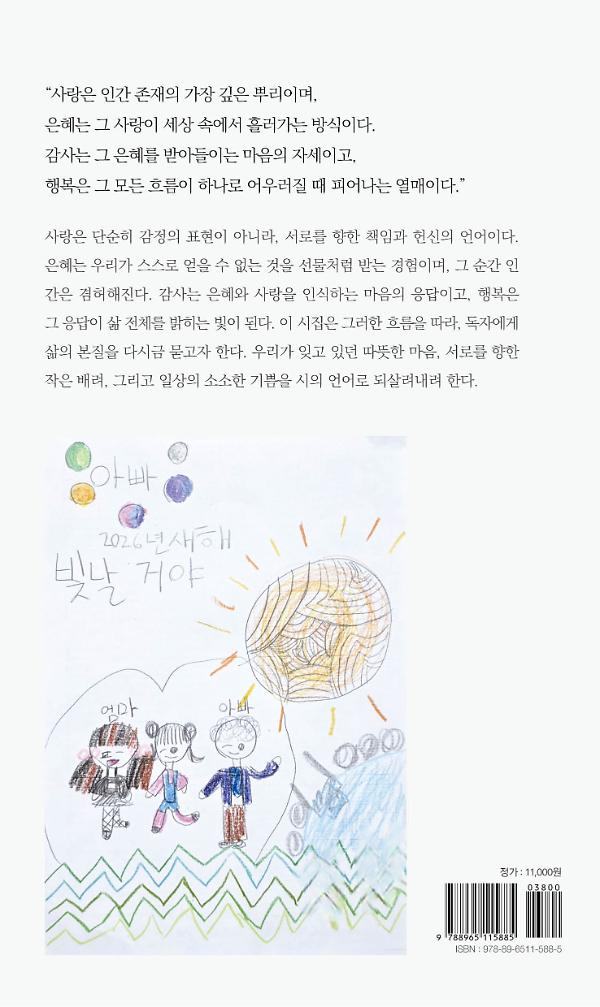 “사랑은 인간 존재의 가장 깊은 뿌리이며,
은혜는 그 사랑이 세상 속에서 흘러가는 방식이다.
감사는 그 은혜를 받아들이는 마음의 자세이고,
행복은 그 모든 흐름이 하나로 어우러질 때 피어나는 열매이다.”
사랑은 단순히 감정의 표현이 아니라, 서로를 향한 책임과 헌신의 언어이다.
은혜는 우리가 스스로 얻을 수 없는 것을 선물처럼 받는 경험이며, 그 순간 인
간은 겸허해진다. 감사는 은혜와 사랑을 인식하는 마음의 응답이고, 행복은
그 응답이 삶 전체를 밝히는 빛이 된다. 이 시집은 그러한 흐름을 따라, 독자에게
삶의 본질을 다시금 묻고자 한다. 우리가 잊고 있던 따뜻한 마음, 서로를 향한
작은 배려, 그리고 일상의 소소한 기쁨을 시의 언어로 되살려내려 한다.
아빠
2026년새해
빛날 거야
엄마
아빠
정가 : 11,000원
03800
9 788965 115885
ISBN : 978-89-6511-588-5